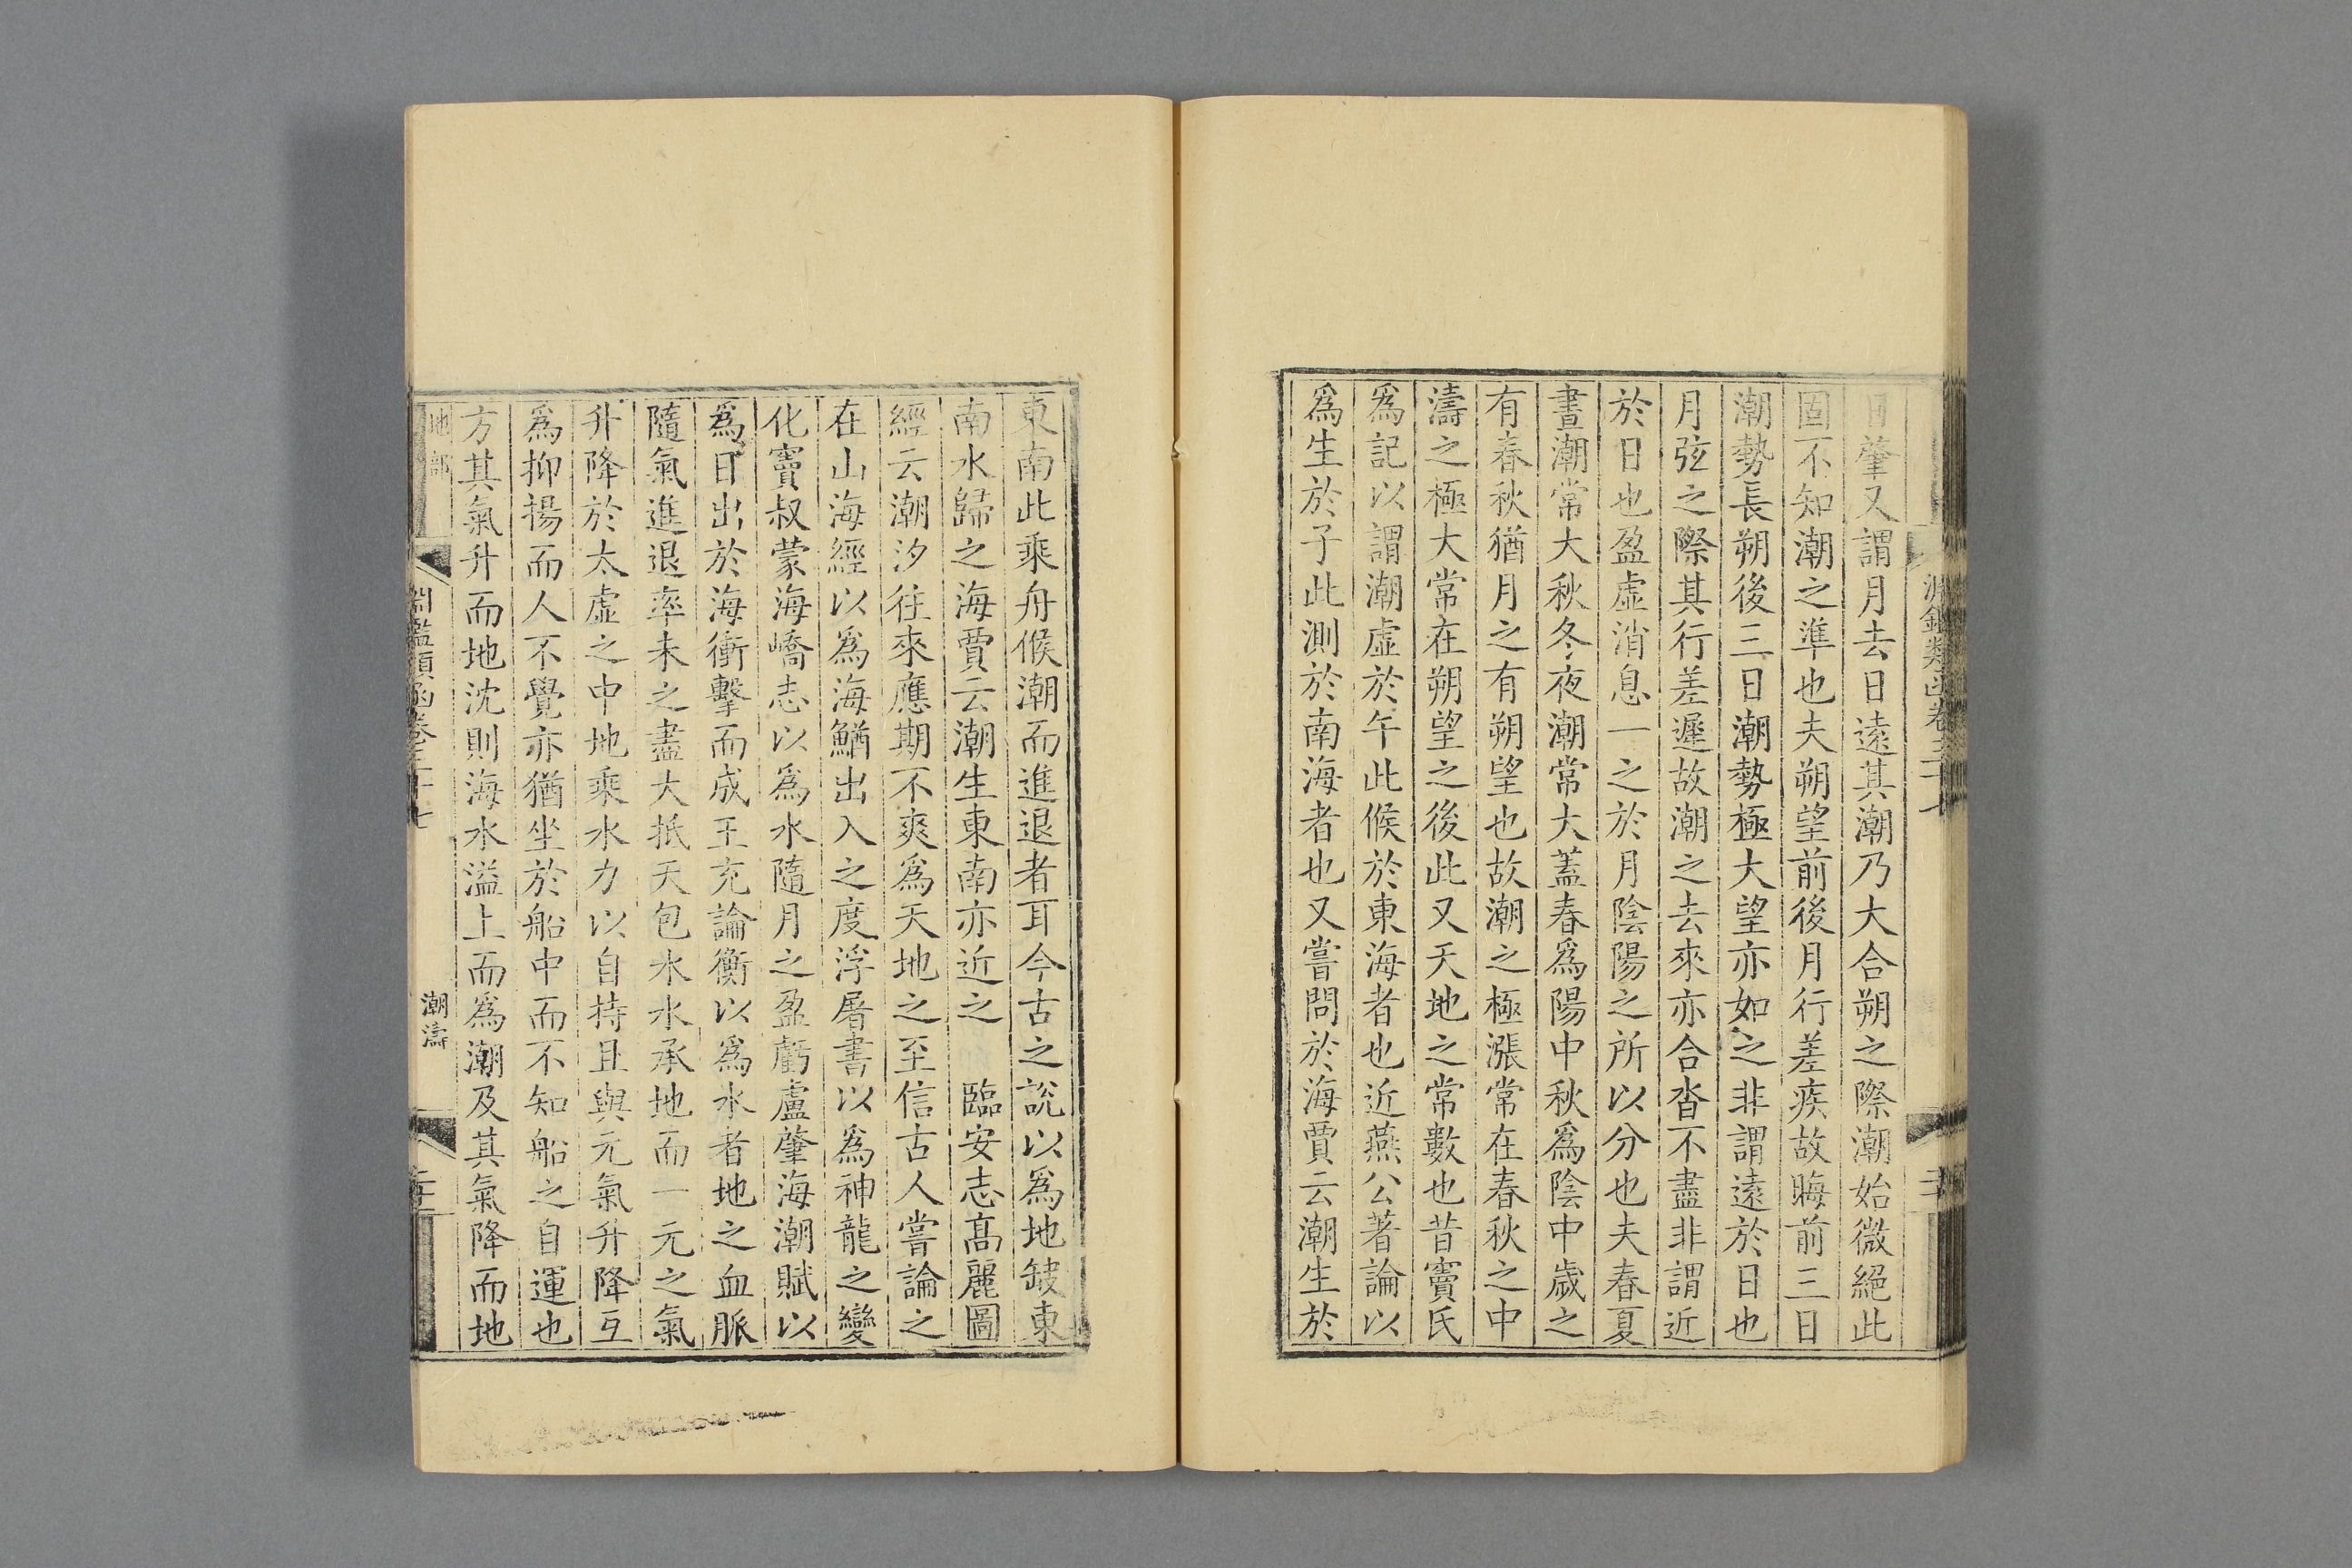 肇又謂月去日遠其潮乃大合朔之際潮始微絕此
固不知潮之準也夫朔望前後月行差疾故晦前三日
潮勢長朔後三日潮勢極大望亦如之非謂遠於日也
月弦之際其行差遲故潮之去來亦合沓不盡非謂近
於日也盈虛消息一之於月陰陽之所以分也夫春夏
晝潮常大秋冬夜潮常大蓋春爲陽中秋爲陰中歲之
有春秋猶月之有朔望也故潮之極漲常在春秋之中
濤之極大常在朔望之後此又天地之常數也昔竇氏
爲記以謂潮虛於午此候於東海者也近燕公著論以
爲生於子此測於南海者也又嘗問於海賈云潮生於
東南此乘舟候潮而進退者耳今古之說以爲地缺東
南水歸之海賈云潮生東南亦近之 臨安志高麗圖
經云潮汐往來應期不爽爲天地之至信古人嘗論之
在山海經以爲海鰌出入之度浮屠書以爲神龍之變
化竇叔蒙海嶠志以爲水隨月之盈虧盧肇海潮賦以
爲日出於海衝擊而成王充論衡以爲水者地之血脈
隨氣進退率未之盡大抵天包水水承地而一元之氣
升降於太虛之中地乘水力以自持且與元氣升降互
爲抑揚而人不覺亦猶坐於船中而不知船之自運也
方其氣升而地沈則海水溢上而爲潮及其氣降而地
地部
淵鑑類函卷三十七
潮濤